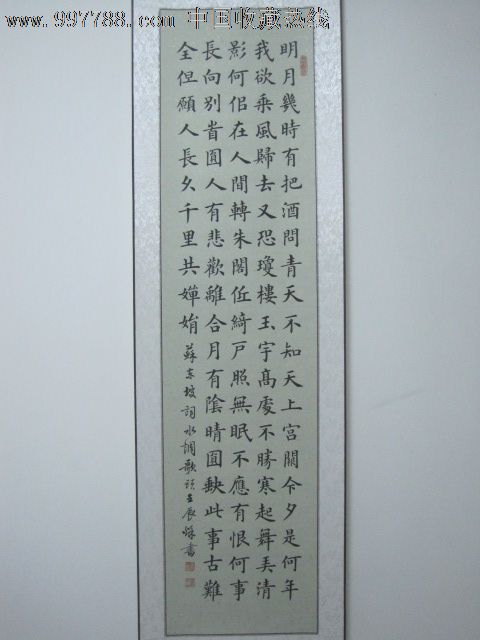 www.997788.com 中国收藏热线
明月幾時有把酒問青天不知天上宮闕今夕是何年
我欲乘風歸去又恐瓊樓玉宇高處不勝寒起舞弄清
影何佀在人間轉朱閣低綺戶照無眠不應有恨何事
長向別旹圓人有悲歡離合月有陰晴圓缺此事古難
全但願人長久千里共嬋娟
蘇東坡詞水調歌頭壬辰秋書